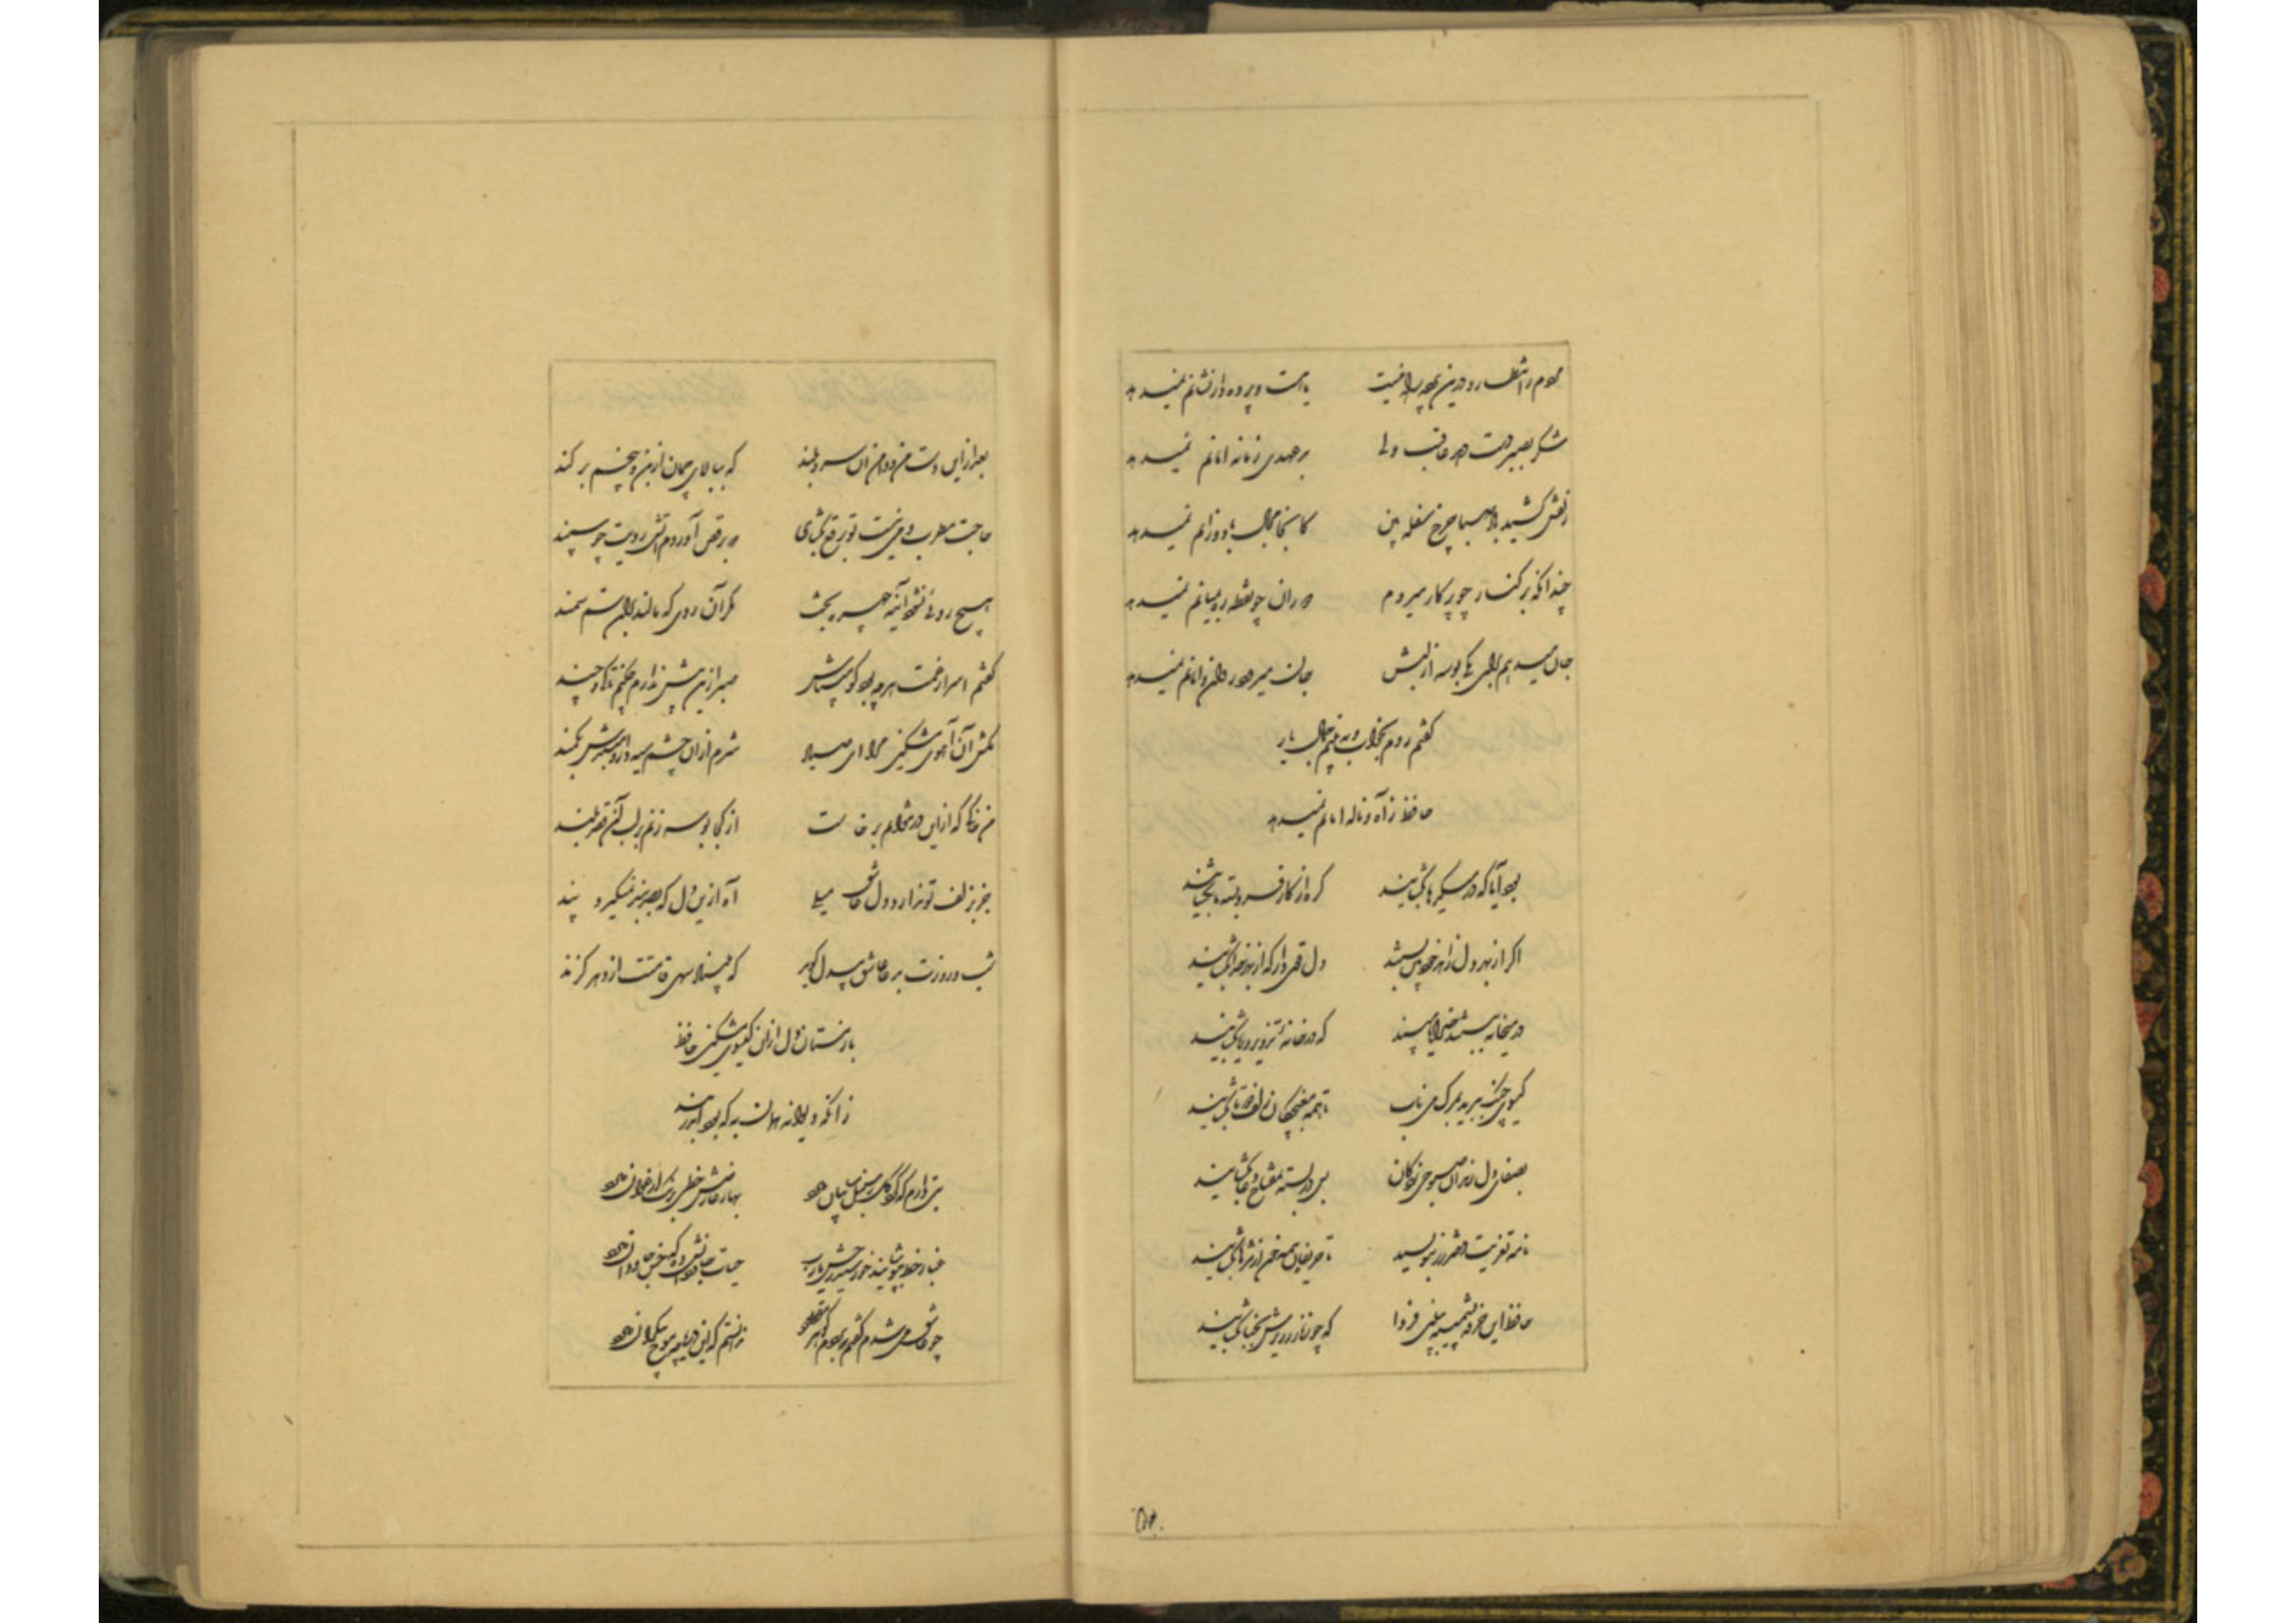 مردم ز انتظار و درین پرده راه نیست یا هست و پرده دار نشانم نمیدهد
شکر بصبر دست دهد عاقبت ولی بد عهدی زمانه امانم نمیدهد
زلفش کشید باد صبا چرخ سفله بین کانجا مجال باد وزانم نمیدهد
چندانکه بر کنار چو پرکار میروم دوران چو نقطه ره بمیانم نمیدهد
جان میدهم برای یکی بوسه از لبش جان میدهد
گفتم روم بخواب و به بینم جمال یار
حافظ ز آه و ناله امانم نمیدهد
بود آیا که در میکدها بکشایند گره از کار فروبسته ما بکشایند
اگر از بهر دل زاهد خودبین بستند دل قوی دار که از بهر خدا بکشایند
در میخانه ببستند خدایا مپسند که در خانه تزویر و ریا بکشایند
گیسوی چنگ ببرید بمرگ می ناب تا همه مغبچگان زلف دوتا بکشایند
بصفای دل رندان صبوحی زدگان بس در بسته بمفتاح دعا بکشایند
نامه تعزیت دختر رز بنویسید تا حریفان همه خون از مژها بکشایند
حافظ این خرقه پشمینه ببینی فردا که چه زنار ز زیرش بجفا بکشایند
بعد ازاین دست من و دامن آن سرو بلند که ببالای چمان از بن و بیخم بر کند
حاجت مطرب و می نیست تو برقع بکشای که برقص آوردم آتش رویت چو سپند
هیچ روئی نشود آینه چهره بخت مگر آن روی که مالند بران سم سمند
گفتم اسرار غمت هرچه بود گو میباش صبر ازین بیش ندارم چکنم تا کی و چند
مکش آن آهوی مشکین مرا ای صیاد شرم ازان چشم سیه دار و مبندش بکمند
من خاکی که ازاین در نتوانم برخاست از کجا بوسه زنم بر لب آن قصر بلند
جز بزلف تو ندارد دل عاشق میلی آه ازین دل که بصد بند نمیگیرد پند
که مبیناد سهی قامتت از دهر گزند
باز مستان دل ازان گیسوی مشکین حافظ
زانکه دیوانه همان به که بود اندر بند
بتی دارم که گرد گل ز سنبل سایبان دارد بهار عارضش خطی بخون ارغوان دارد
غبار خط بپوشانید خورشید رخش یارب حیات جاودانش ده که حسن جاودان دارد
چو عاشق می شدم گفتم که بردم گوهر مقصود ندانستم که این دریا چه موج بیکران دارد